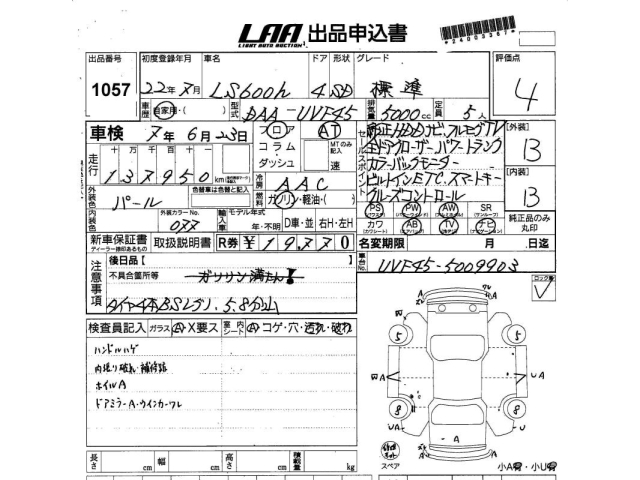 LAA 出品申込書
LIGHT AUTO AUCTION
*24003367*
出品番号 初度登録年月 車名 ドア 形状 グレード 評価点
1057 22年 7月 LS600h 4 SD 標準 4
車歴 自家用・( ) 型式 DAA-UVF45 排気量 5000cc 定員 5人
車検 7年 6月 23日 フロア AT
コラム MTのみ記入
ダッシュ 速
セールスポイント
純正HDDナビ、フルセグTV
全ドアクローザー、パワートランク
カラーバックモニター
ビルトインETC、スマートキー
クルーズコントロール
【外装】 B
【内装】 B
走行 十万 万 千 百 十
137950 km
冷房 AAC
外装色 色替車は色替と記入
パール
燃料 ガソリン・軽油・( )
PS PW AW SR
カワ AB TV ナビ
純正品のみ丸印
内装色 外装カラーNo. 077
輸入車 モデル年式 年・不明 D車・並 右H・左H
新車保証書 取扱説明書 R券 ¥19,770
ディーラー捺印あるもの
名変期限 月 日迄
注意事項 後日品【 】
不具合箇所等 ガソリン満たん!
タイヤ4本BSレグノ、5.8分山
車台No. UVF45-5009903
ロック番
検査員記入 ガラス A・X要ス 室内シート A・コゲ・穴・汚れ・破れ
ハンドルハゲ
内張り破れ・補修跡
ホイルA
ドアミラーA・ウインカーワレ
5 5
A UA
8 8
A
スペア
小A・小U
長さ cm 幅 cm 高さ cm 積載量 kg